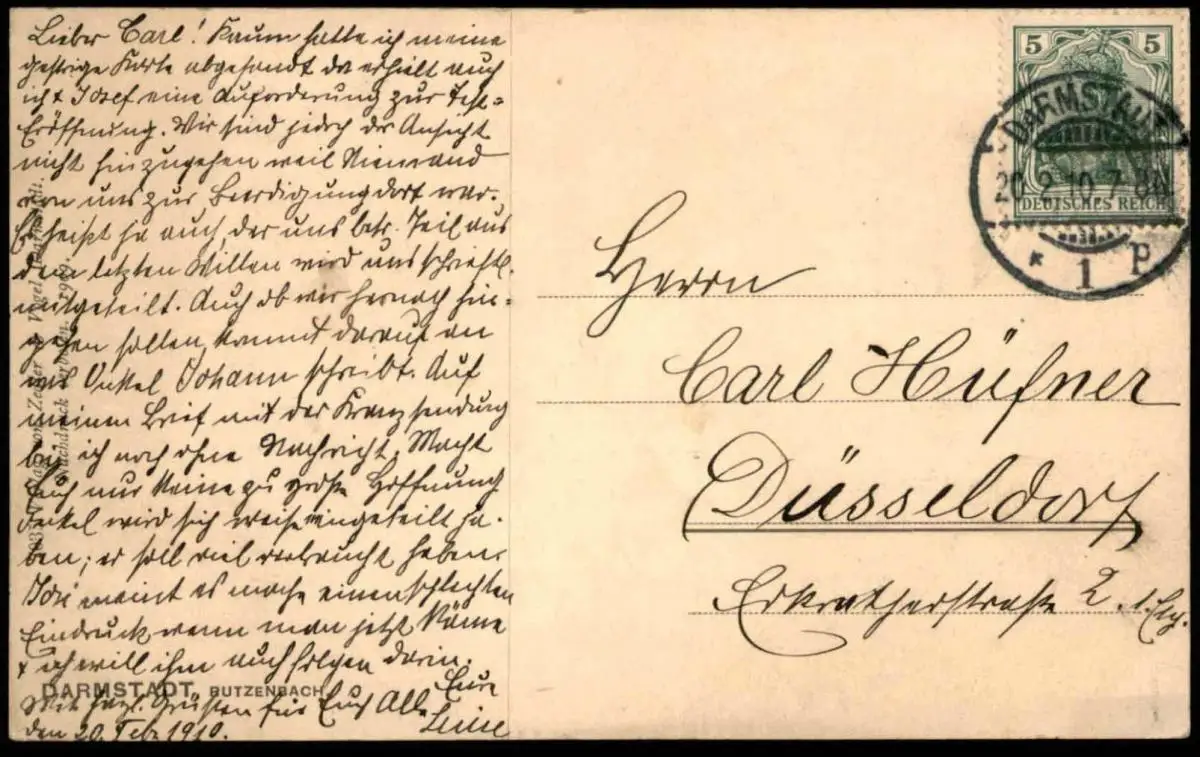 Lieber Carl! Kaum hatte ich meine
gestrige Karte abgesandt da erhielt auch
ich & Josef eine Auforderung zur Test=
Eröffnung. Wir sind jedoch der Ansicht
nicht hinzugehen weil Niemand
von uns zur Beerdigung dort war.
Es heißt ja auch, der uns betr. Teil aus
dem letzten Willen wird uns schriftl.
mitgeteilt. Auch ob wir hernach hin-
gehen sollen, kommt darauf an
was Onkel Johann schreibt. Auf
meinen Brief mit der Kranzsendung
bin ich noch ohne Nachricht. Macht
Euch nur keine zu große Hoffnung
Onkel wird sich weise eingeteilt ha-
ben; er soll viel verbraucht haben.
meint es mache einen schlechten
Eindruck wenn man jetzt käme
& ich will ihm auch folgen darin.
Mit hzl. Grüßen für Euch Alle Eure
den 20. Febr 1910.
DARMSTADT, BUTZENBACH
Vogel, Darmstadt.
Nachdruck verboten. 1909.
5 5
DEUTSCHES REICH
DARMSTADT
20.2.10.7-8N.
* 1 P
Herrn
Carl Hüfner
Düsseldorf
Erkratherstraße 2 1. Etg.